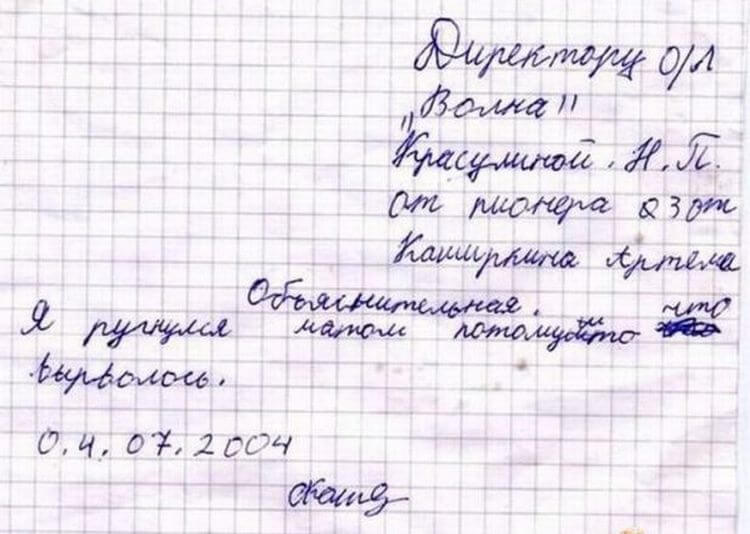 Директору о/л
„Волна"
Красулиной. Н.П.
от пионера 2 3 от
Каширкина Артема
Объяснительная.
Я ругнулся матом потомушто что
вырволось.
0.4.07.2004